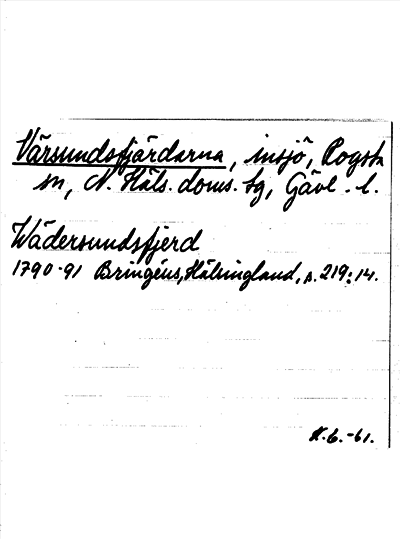 Värsundsfjärdarna, insjö, Rogsta
sn, N. Häls. doms. tg, Gävl. l.
Wädersundsfjerd
1790-91 Bringéus, Hälsingland, s. 219:14.
K.G.-61.